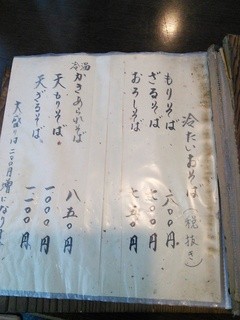 冷たいおそば（税抜き）
もりそば 六〇〇円
ざるそば 七〇〇円
おろしそば 七五〇円
温冷 かきあられそば 八五〇円
天もりそば。 一〇〇〇円
天ざるそば。 一一〇〇円
大盛りは二〇〇円増になります